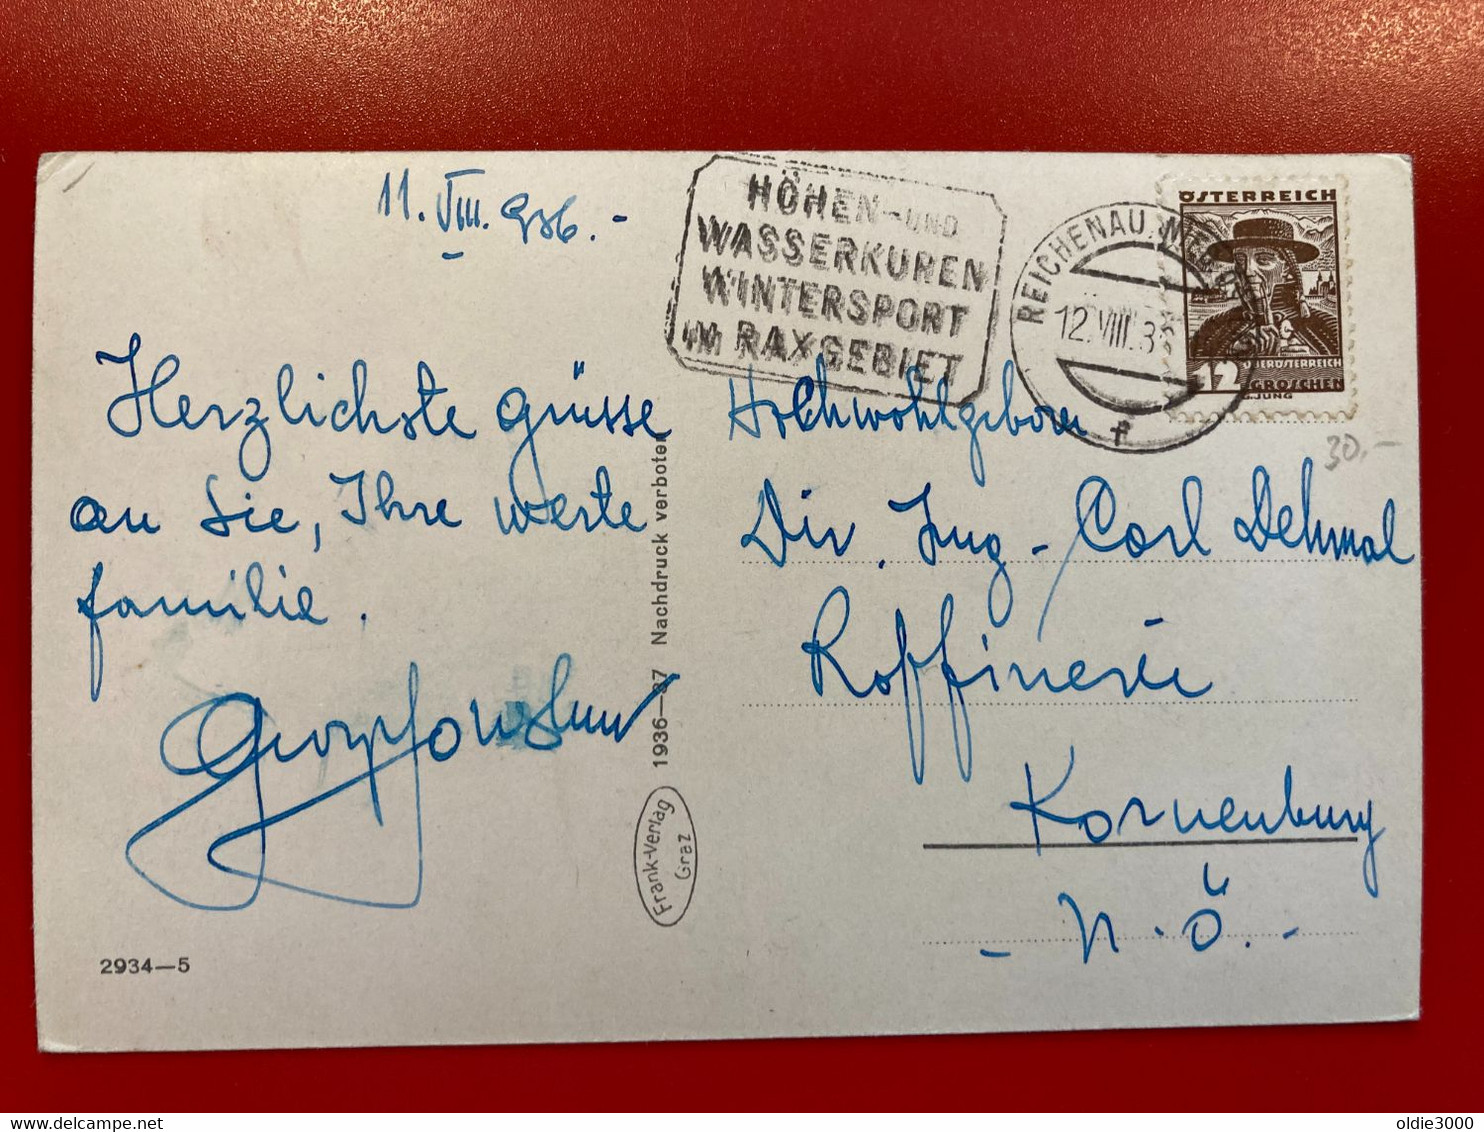 11. VIII. 936.-
Herzlichste Grüsse
an Sie, Ihre werte
Familie.
2934—5
Frank-Verlag
Graz
1936—37 Nachdruck verboten
HÖHEN- UND
WASSERKUREN
WINTERSPORT
IM RAXGEBIET
REICHENAU
12.VIII.3
f
ÖSTERREICH
12 GROSCHEN
OBERÖSTERREICH
G.JUNG
30.-
Hochwohlgeboren
Dir. Ing. Carl Dehmal
Raffinerie
Korneuburg
- N.Ö. -
oldie3000